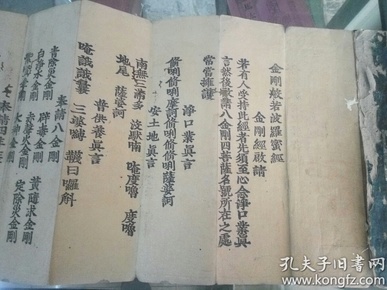 金剛般若波羅蜜經
金剛經啟請
若有人受持此經者先須至心念淨口業真
言然後啟請八金剛四菩薩名號所在之處
常當擁護
淨口業真言
脩唎脩唎摩訶脩唎脩脩唎薩婆訶
安土地真言
南無三滿多 沒馱喃 唵度嚕 度嚕
地尾 薩婆訶
普供養真言
唵 三婆 韈日囉斛
奉請八金剛
青除災金剛 辟毒金剛 黃隨求金剛
白淨水金剛 赤聲火金剛 定除災金剛
孔夫子旧书网
www.kongfz.com